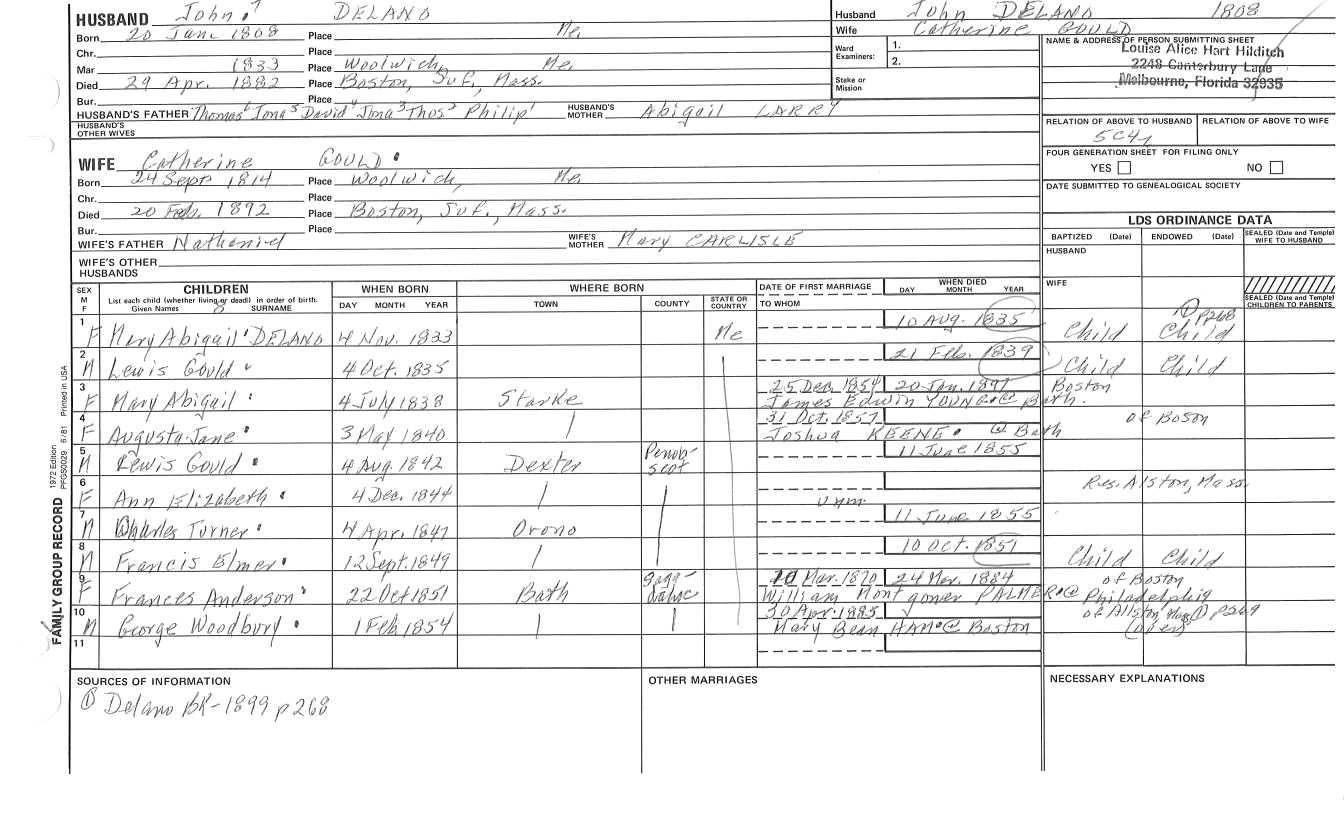 HUSBAND John⁷ DELANO
Born 20 Jan. 1808 Place Me.
Chr. Place
Mar 1833 Place Woolwich, Me.
Died 29 Apr. 1882 Place Boston, Suf, Mass.
Bur. Place
HUSBAND'S FATHER Thomas⁶ Jona⁵ David⁴ Jona³ Thos² Philip¹ HUSBAND'S MOTHER Abigail LARRY
HUSBAND'S OTHER WIVES
WIFE Catherine GOULD
Born 24 Sept 1814 Place Woolwich, Me.
Chr. Place
Died 20 Feb. 1892 Place Boston, Suf., Mass.
Bur. Place
WIFE'S FATHER Nathaniel WIFE'S MOTHER Mary CARLISLE
WIFE'S OTHER HUSBANDS
Husband John DELANO 1808
Wife Catherine GOULD
Ward Examiners: 1.
2.
Stake or Mission
NAME & ADDRESS OF PERSON SUBMITTING SHEET
Louise Alice Hart Hilditch
2248 Canterbury Lane
Melbourne, Florida 32935
RELATION OF ABOVE TO HUSBAND RELATION OF ABOVE TO WIFE
5C4
FOUR GENERATION SHEET FOR FILING ONLY
YES NO
DATE SUBMITTED TO GENEALOGICAL SOCIETY
LDS ORDINANCE DATA
BAPTIZED (Date) ENDOWED (Date) SEALED (Date and Temple) WIFE TO HUSBAND
HUSBAND
WIFE
SEALED (Date and Temple) CHILDREN TO PARENTS
SEX M F
CHILDREN
List each child (whether living or dead) in order of birth.
Given Names 8 SURNAME
WHEN BORN
DAY MONTH YEAR
WHERE BORN
TOWN COUNTY STATE OR COUNTRY
DATE OF FIRST MARRIAGE
TO WHOM
WHEN DIED
DAY MONTH YEAR
1 10 Aug. 1835 ① P268
F Mary Abigail DELANO 4 Nov. 1833 Me Child Child
2 21 Feb. 1839
M Lewis Gould 4 Oct. 1835 Child Child
3 25 Dec. 1854 20 Jan. 1897 Boston
F Mary Abigail 4 July 1838 Starke James Edwin YOUNG @ Bath.
4 31 Oct. 1857 of Boson
F Augusta Jane 3 May 1840 Joshua KEENE @ Bath
5 11 June 1855
M Lewis Gould 4 Aug. 1842 Dexter Penobscot
6 Res. Alston, Mass
F Ann Elizabeth 4 Dec. 1844 unm.
7 11 June 1855
M Charles Turner 4 Apr. 1847 Orono
8 10 Oct. 1851
M Francis Elmer 12 Sept. 1849 Child Child
9 10 Mar. 1870 24 Mar. 1884 of Boston
F Frances Anderson 22 Oct 1851 Bath Sagadahoc William Montgomer PALMER @ Philadelphia
10 30 Apr. 1885 of Allston, Mass ① P269
M George Woodbury 1 Feb 1854 Mary Bean HAM @ Boston (over)
11
SOURCES OF INFORMATION
① Delano BK-1899 p268
OTHER MARRIAGES
NECESSARY EXPLANATIONS
FAMILY GROUP RECORD 1972 Edition PFGS0029 6/81 Printed in USA